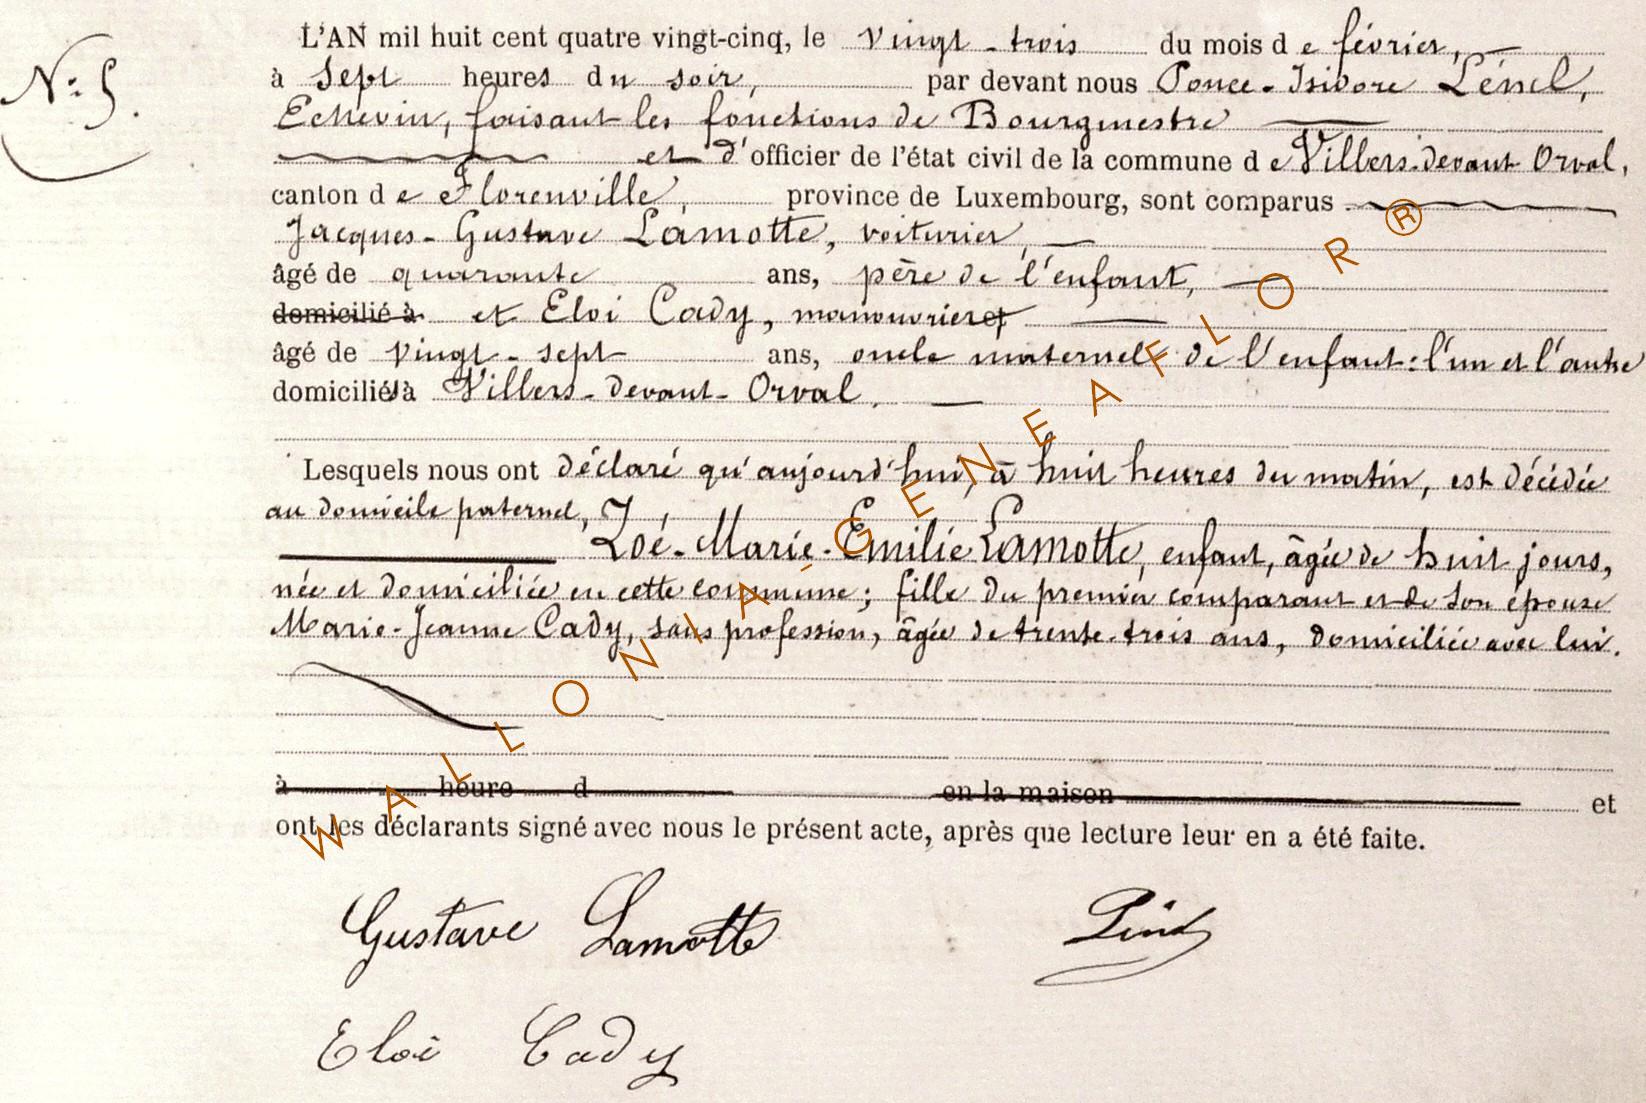 N° 5.
L'AN mil huit cent quatre vingt-cinq, le vingt-trois du mois de février,
à sept heures du soir, par devant nous Ponce-Isidore Lénel,
Echevin, faisant les fonctions de Bourgmestre
et d'officier de l'état civil de la commune de Villers-devant-Orval,
canton de Florenville, province de Luxembourg, sont comparus
Jacques-Gustave Lamotte, voiturier,
âgé de quarante ans, père de l'enfant,
domicilié à et Eloi Cady, manouvrier et
âgé de vingt-sept ans, oncle maternel de l'enfant: l'un et l'autre
domiciliés à Villers-devant-Orval.
Lesquels nous ont déclaré qu'aujourd'hui, à huit heures du matin, est décédée
au domicile paternel,
Zoé-Marie-Emilie Lamotte, enfant, âgée de huit jours,
née et domiciliée en cette commune; fille du premier comparant et de son épouse
Marie-Jeanne Cady, sans profession, âgée de trente-trois ans, domiciliée avec lui.
à heure d en la maison et
ont les déclarants signé avec nous le présent acte, après que lecture leur en a été faite.
Gustave Lamotte
Eloi Cady
WALLONIA-GENEAFLOR®